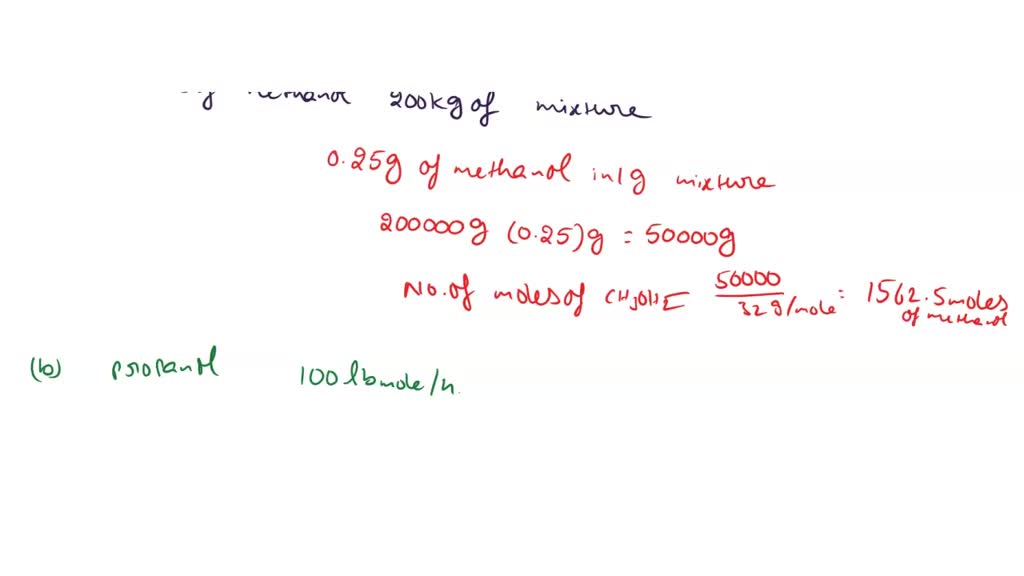 methanol 200kg of mixture
0.25g of methanol in 1g mixture
200000g (0.25)g = 50000g
No. of moles of CH3OH = 50000 / 32g/mole = 1562.5moles of methanol
(b) propanol 100 lbmole/h.